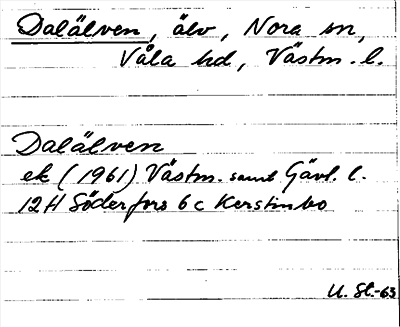 Dalälven, älv, Nora sn,
Våla hd, Västm. l.
Dalälven
ek (1961) Västm. samt Gävl. l.
12H Söderfors 6c Kerstinbo
U. St.-63